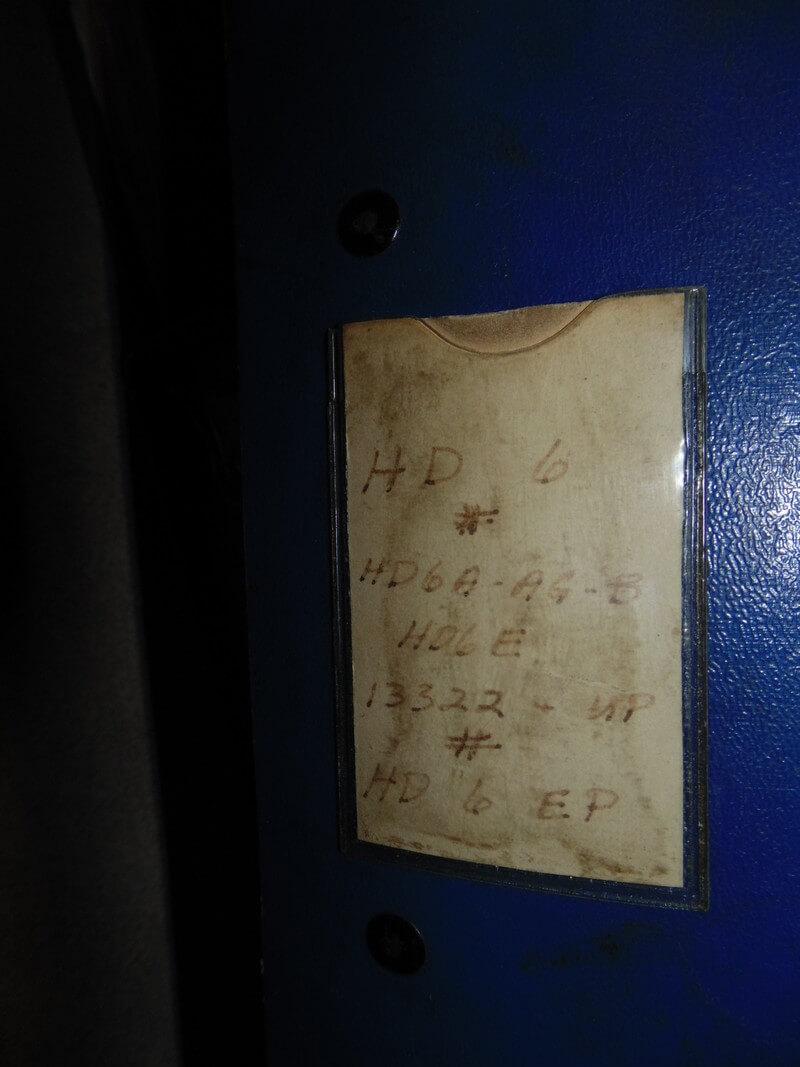 HD 6
#
HD6A-AG-B
HD6E
13322 - UP
#
HD 6 EP